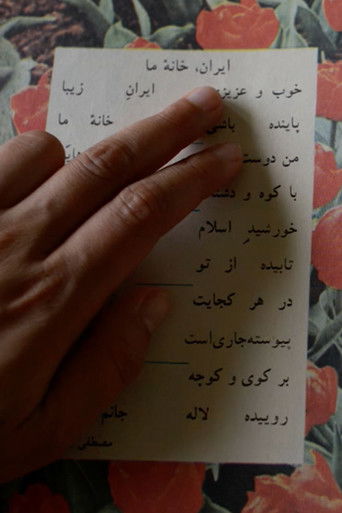 ایران، خانهٔ ما
خوب و عزیزی ایرانِ زیبا
پاینده باشی خانهٔ ما
من دوست
با کوه و دشت
خورشیدِ اسلام
تابیده از تو
در هر کجایت
پیوسته جاری‌است
بر کوی و کوچه
روییده لاله جانم
مصطفی